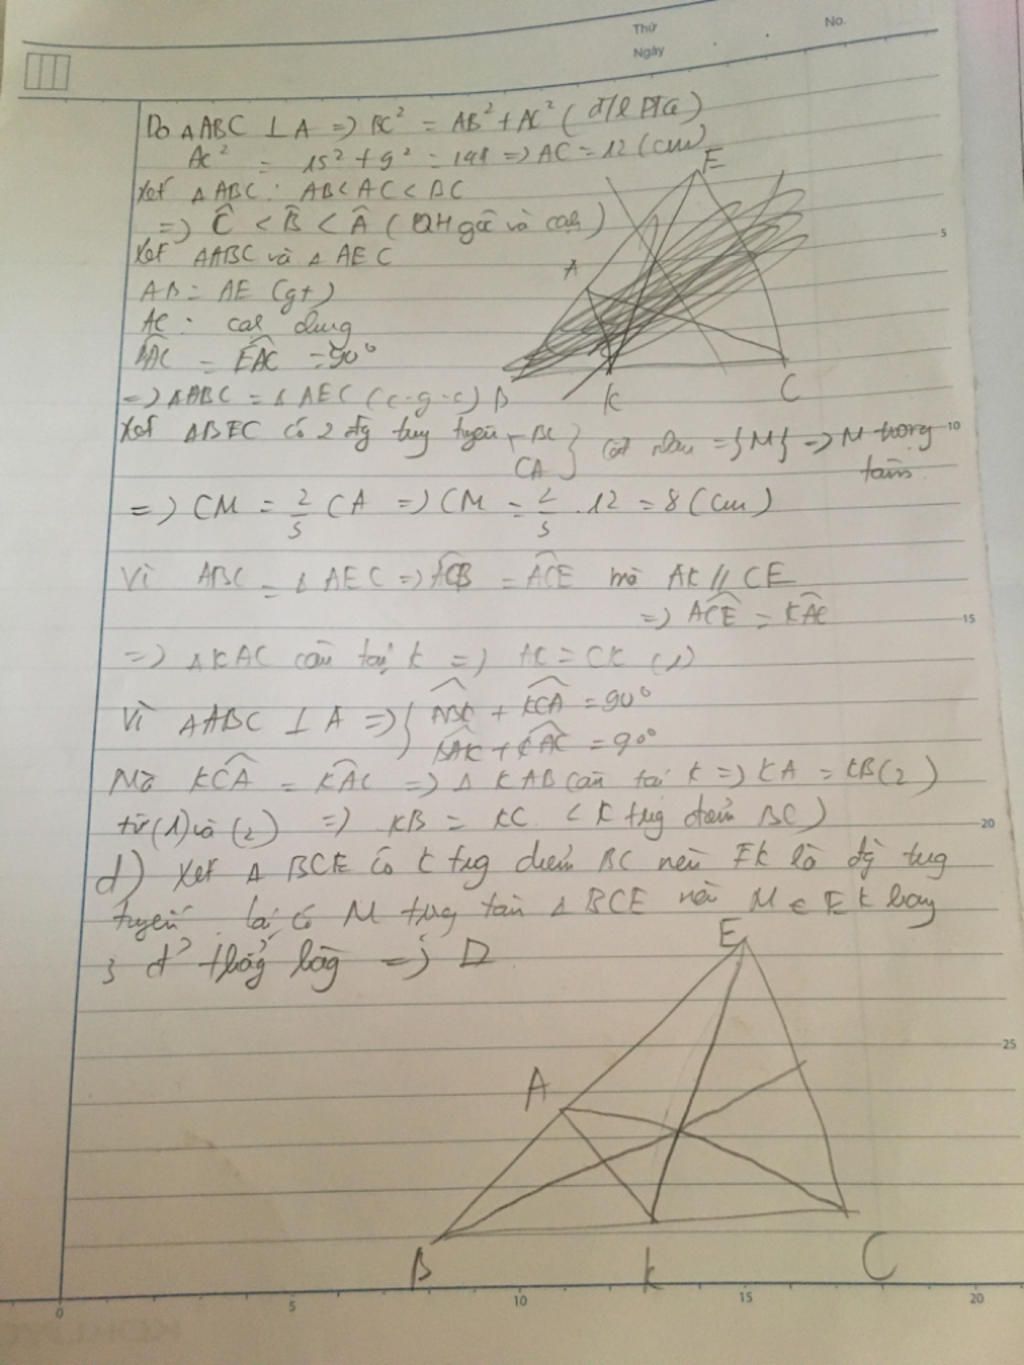 Thứ
No.
Ngày
Do ΔABC ⊥ A => BC² = AB² + AC² (đ/l PTG)
AC² = 15² + 9² = 144 => AC = 12 (cm)
Xét ΔABC : AB < AC < BC
=> Ĉ < B̂ < Â (QH góc và cạh)
Xét ΔABC và ΔAEC
AB = AE (gt)
AC : cạh chung
BAC = EAC = 90°
=> ΔABC = ΔAEC (c-g-c)
Xét ΔBEC có 2 đg tug tuyến
CA } cắt nhau = {M} => M trọng
tâm
=> CM = 2/3 CA => CM = 2/3 . 12 = 8 (cm)
Vì ABC = ΔAEC => ACB = ACE mà AK // CE
=> ACE = KAC
=> ΔKAC cân tại K => AK = CK (1)
Vì ΔABC ⊥ A => { ABC + KCA = 90°
BAK + KAC = 90°
Mà KCA = KAC => ΔKAB cân tại K => KA = KB (2)
từ (1) và (2) => KB = KC < K trug điểm BC)
d) Xét Δ BCE có K trug điểm BC nên EK là đg trug
tuyến lại có M trọg tâm ΔBCE nên M ∈ EK hay
3 đ' thẳg hàg => D
E
A
B
K
C
E
A
B
K
C
5
10
15
20
25
0
5
10
15
20